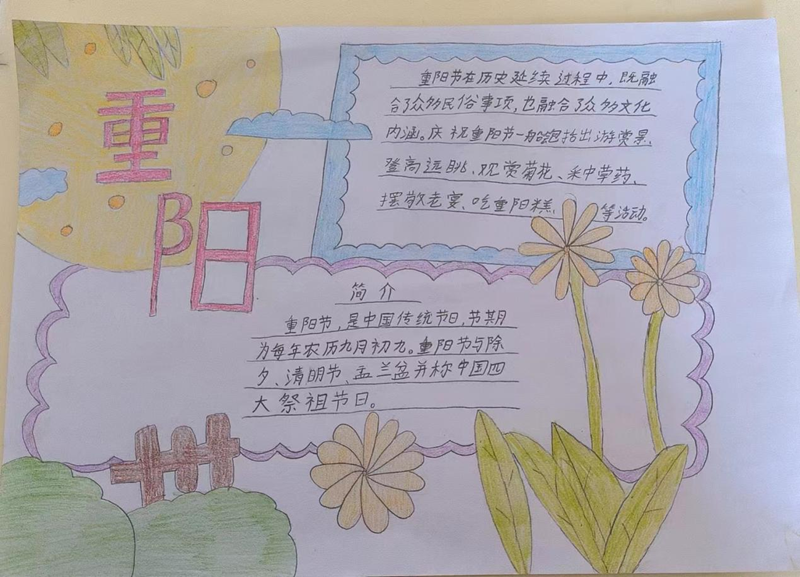 重
阳
重阳节在历史延续过程中，既融
合了众多民俗事项，也融合了众多文化
内涵。庆祝重阳节一般包括出游赏景、
登高远眺、观赏菊花、采中草药、
摆敬老宴、吃重阳糕、等活动。
简介
重阳节，是中国传统节日，节期月
为每年农历九月初九。重阳节与除
夕、清明节、盂兰盆并称中国四
大祭祖节日。